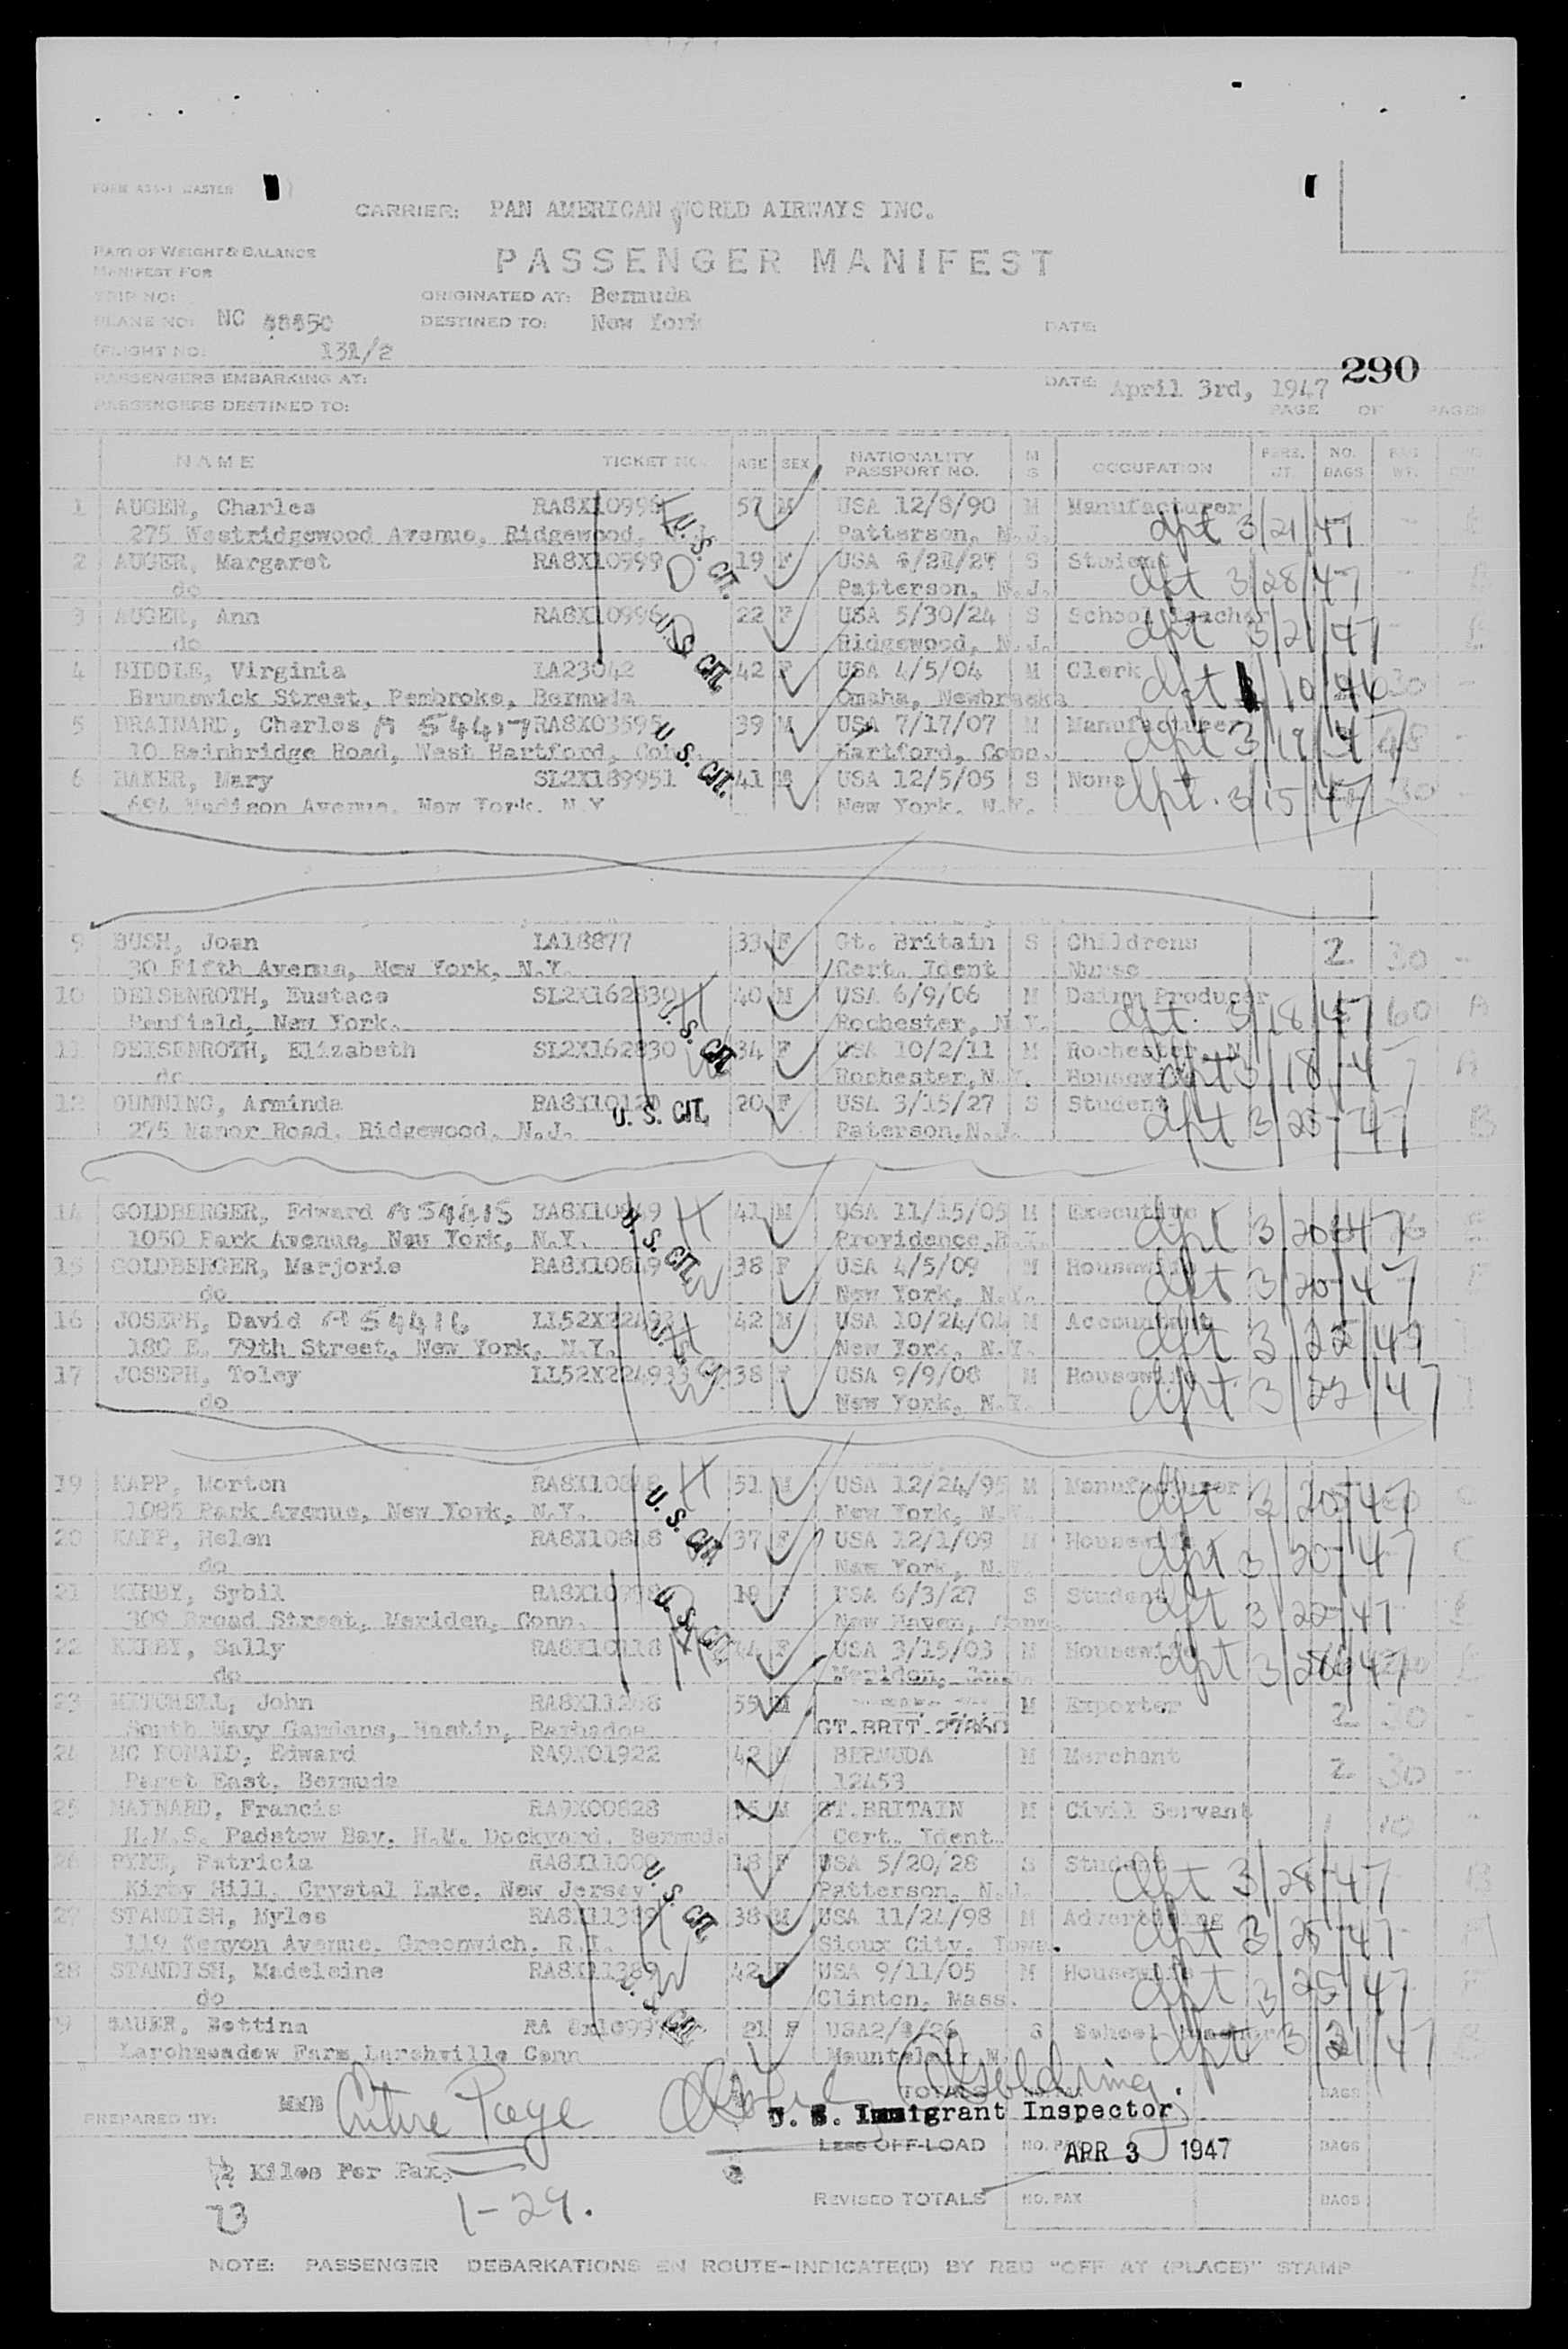 FORM MASTER
CARRIER: PAN AMERICAN WORLD AIRWAYS INC.
PART OF WEIGHT & BALANCE
MANIFEST FOR
PASSENGER MANIFEST
TRIP NO: ORIGINATED AT: Bermuda
PLANE NO: NC 88850 DESTINED TO: New York DATE:
(FLIGHT NO: 131/2
290
PASSENGERS EMBARKING AT: DATE: April 3rd, 1947
PASSENGERS DESTINED TO: PAGE OF PAGES
NAME TICKET NO. AGE SEX NATIONALITY PASSPORT NO. M S OCCUPATION PERS. WT. NO. BAGS
1 AUGER, Charles RA8X10996 57 M USA 12/8/90 M Manufacturer
275 Westridgewood Avenue, Ridgewood, U. S. CIT. Patterson, N.J. dpt 3/21/47
2 AUGER, Margaret RA8X10999 19 F USA S Student
do Patterson, N.J. dpt 3/28/47
3 AUGER, Ann RA8X10996 22 F USA 5/30/24 S School Teacher
do U.S. CIT. Ridgewood, N.J. dpt 3/21/47
4 BIDDLE, Virginia LA23042 42 F USA 4/5/04 M Clerk
Brunswick Street, Pembroke, Bermuda Omaha, Newbraska dpt 10 46 30
5 BRAINARD, Charles A 54417 RA8X03595 39 M USA 7/17/07 M Manufacturer
10 Bainbridge Road, West Hartford, Conn. U. S. CIT. Hartford, Conn. dpt 3/19/47 48
6 BAKER, Mary SL2X189951 41 USA 12/5/05 S None
694 Madison Avenue, New York, N.Y New York, N.Y. dpt. 3/15/47 30
9 BUSH, Joan LA18877 33 F Gt. Britain S Childrens 2 30
30 Fifth Avenue, New York, N.Y. Cert. Ident Nurse
10 DEISENROTH, Eustace SL2X162830 H 40 M USA 6/9/06 M Dairy Producer
Penfield, New York. U. S. CIT. Rochester, N.Y. dpt. 3/18/47 60 A
11 DEISENROTH, Elizabeth SL2X162830 W 34 F USA 10/2/11 M Rochester, N
do Rochester, N.Y. Housewife dpt 3/18/47 A
12 DUNNING, Arminda RA8X10120 20 F USA 3/15/27 S Student
275 Manor Road, Ridgewood, N.J. U. S. CIT. Paterson, N.J. dpt 3/25/47 B
14 GOLDBERGER, Edward A 54415 RA8X10849 H 41 M USA 11/15/05 M Executive
1050 Park Avenue, New York, N.Y. U. S. CIT. Providence, R.I. dpt 3/20/47
15 GOLDBERGER, Marjorie RA8X10849 W 38 F USA 4/5/09 M Housewife
do New York, N.Y. dpt 3/20/47
16 JOSEPH, David A 54416 LL52X224933 H 42 M USA 10/24/04 M Accountant
180 E. 79th Street, New York, N.Y. U. S. CIT. New York, N.Y. dpt 3/22/47
17 JOSEPH, Toley LL52X224933 W 38 F USA 9/9/08 M Housewife
do New York, N.Y. dpt 3/22/47
19 KAPP, Morton RA8X10848 H 51 M USA 12/24/95 M Manufacturer
1085 Park Avenue, New York, N.Y. U. S. CIT. New York, N.Y. dpt 3/20/47 C
20 KAPP, Helen RA8X10848 37 F USA 12/1/09 M Housewife
do New York, N.Y. dpt 3/20/47 C
21 KIRBY, Sybil 19 USA 6/3/27 S Student
309 Broad Street, Meriden, Conn. U. S. CIT. New Haven, Conn. dpt 3/22/47
22 KIRBY, Sally RA8X10118 44 F USA 3/15/03 M Housewife
do Meriden, Conn. dpt 3/28/47
23 MITCHELL, John 55 M M Exporter 2 30
South Navy Gardens, Hastin, Barbados GT.BRIT.27860
24 MC DONALD, Edward RA9X01922 42 M BERMUDA M Merchant 2 30
Paget East, Bermuda 12453
25 MAYNARD, Francis RA9X00828 M GT.BRITAIN M Civil Servant 1 10
H.M.S. Padstow Bay, H.M. Dockyard, Bermuda Cert. Ident.
26 PYKE, Patricia RA8X11000 18 F USA 5/20/28 S Student
Kirby Hill, Crystal Lake, New Jersey U. S. CIT. Patterson, N.J. dpt 3/28/47 B
27 STANDISH, Myles RA8X11389 H 38 M USA 11/24/98 M Advertising
119 Kenyon Avenue, Greenwich, R.I. Sioux City, Iowa. dpt 3/25/47
28 STANDISH, Madeleine RA8X11389 W 42 F USA 9/11/05 M Housewife
do U. S. CIT. Clinton, Mass. dpt 3/25/47
9 SAUER, Bettina RA 8x1099 21 F USA S School teacher
Larchmeadow Farm Larchville Conn dpt 3/21/47 B
PREPARED BY: Entire Page
TOTALS BAGS
U. S. Immigrant Inspector
LESS OFF-LOAD NO. PAX APR 3 1947 BAGS
Kilos Per Pax.
73 1-29.
REVISED TOTALS NO. PAX BAGS
NOTE: PASSENGER DEBARKATIONS EN ROUTE-INDICATE(D) BY RED "OFF AT (PLACE)" STAMP